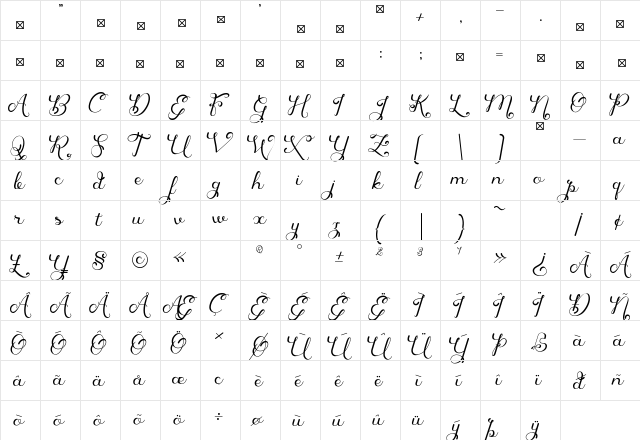 " '  + , – .
: ; =
A B C D E F G H I J K L M N O P
Q R S T U V W X Y Z [ \ ] — a
b c d e f g h i j k l m n o p q
r s t u v w x y z ( | ) ~ ¡ ¢
£ ¥ § © « ® ° ± ² ³ » ¿ À Á
Â Ã Ä Å Æ Ç È É Ê Ë Ì Í Î Ï Ð Ñ
Ò Ó Ô Õ Ö × Ø Ù Ú Û Ü Ý Þ ß à á
â ã ä å æ ç è é ê ë ì í î ï ð ñ
ò ó ô õ ö ÷ ø ù ú û ü ý þ ÿ